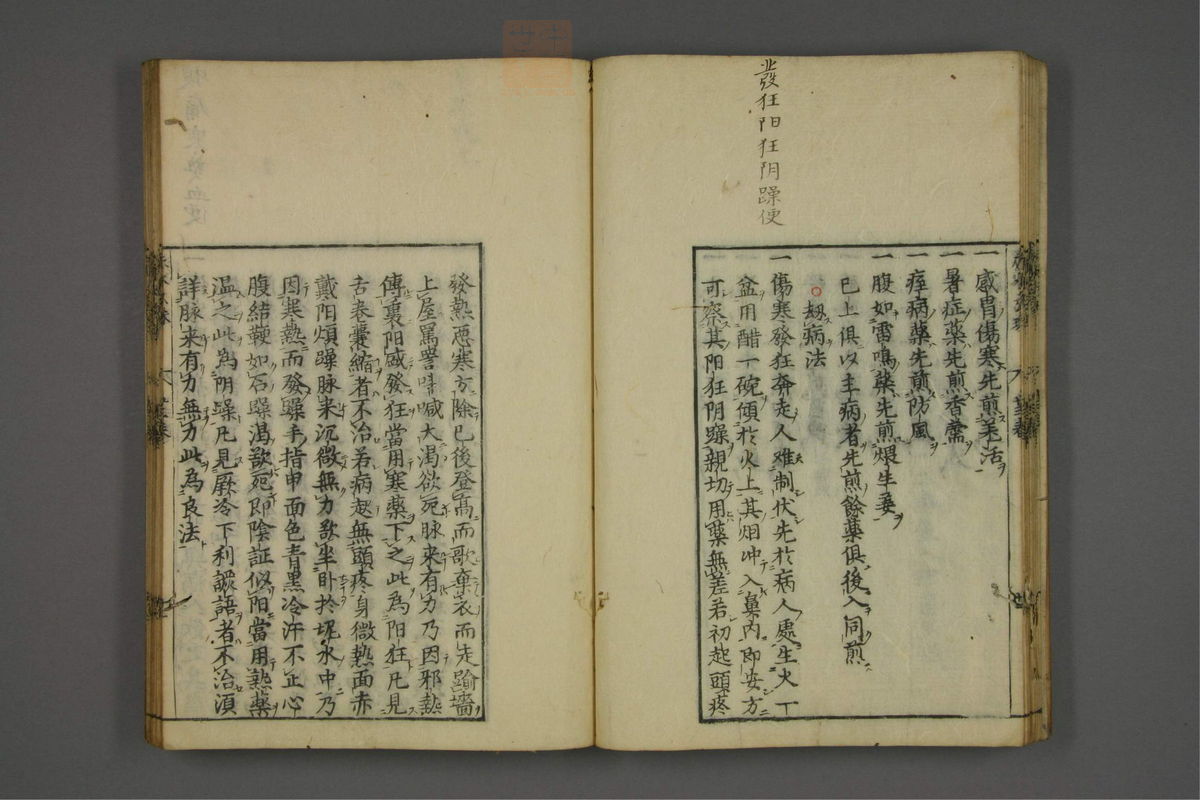 發狂阳狂阴躁便
一感冐傷寒先煎羌活
一暑症藥先煎香薷
一痓病藥先煎防風
一腹如雷鳴藥先煎煨生姜
已上俱以主病者先煎餘藥俱後入同煎
刼病法
一傷寒發狂奔走人难制伏先於病人處生火一
盆用醋一碗傾於火上其烟冲入鼻内即安方
可察其阳狂阴躁親切用藥無差若初起頭疼
發熱恶寒方除已後登髙而歌棄衣而走踰墻
上屋罵詈呌喊大渴欲死脉来有力乃因邪熱
傳裏阳盛發狂當用寒藥下之此為阳狂凡見
舌卷囊縮者不治若病起無頭疼身微熱面赤
戴阳煩躁脉来沉微無力欲坐卧於坭水中乃
因寒熱而發躁手指甲面色青黑冷汗不止心
腹結鞕如石躁渴欲死即陰証似阳當用熱藥
温之此為阴躁凡見厥冷下利譫語者不治須
詳脉来有力無力此為良法